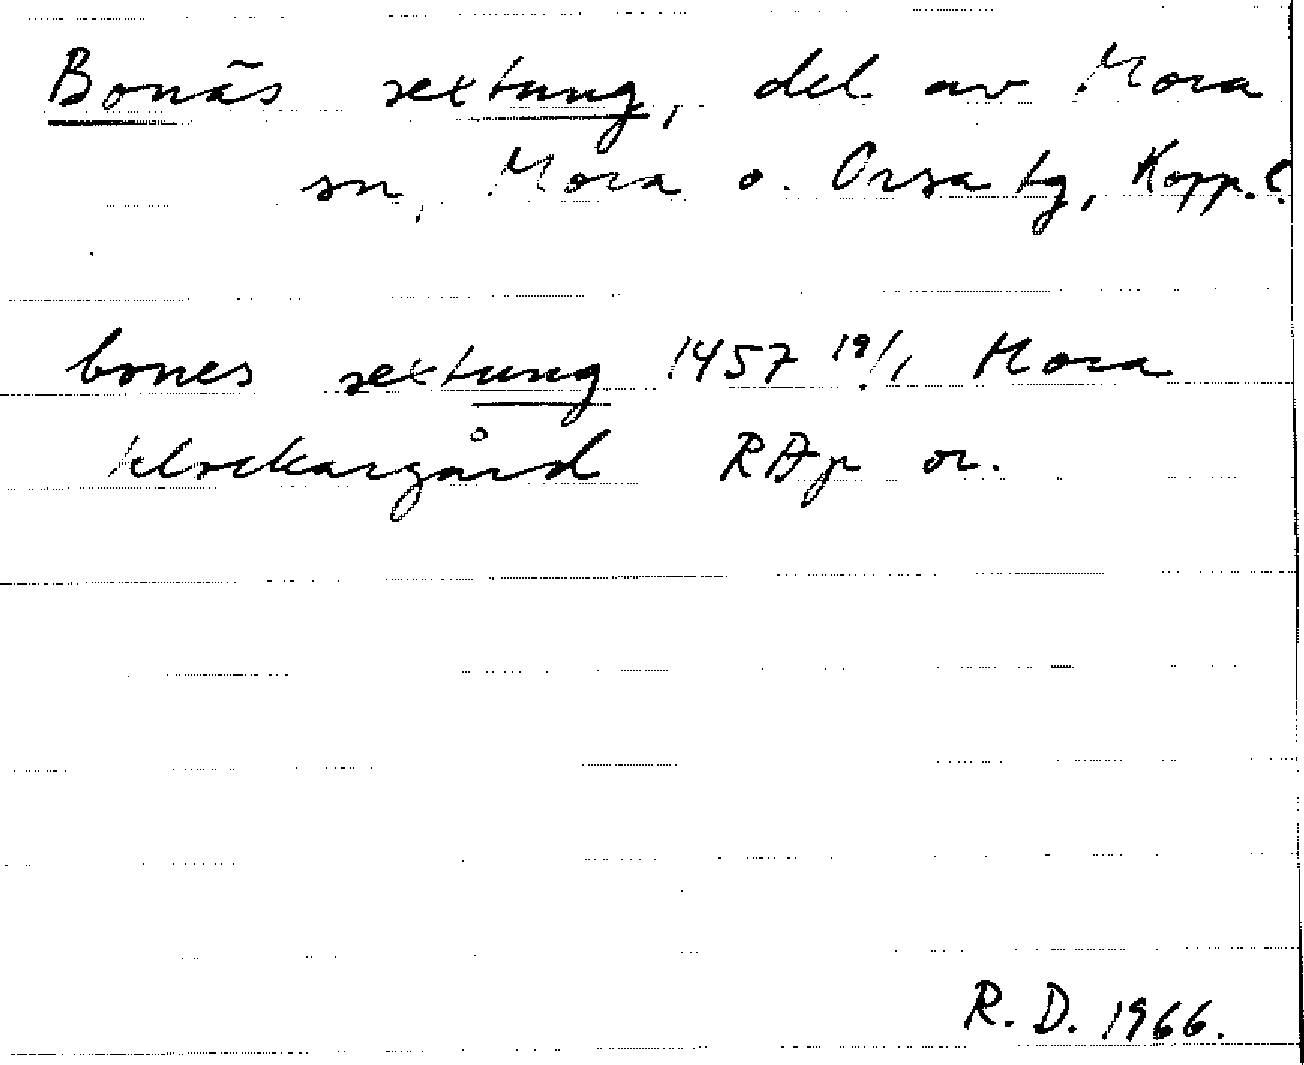 Bonäs sextung, del av Mora
sn, Mora o. Orsa tg, Kopp. l.
bones sextung 1457 19/1 Mora
klockargård RAp or.
R. D. 1966.